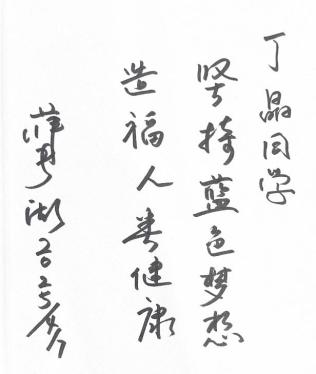 丁晶同学
坚持蓝色梦想
造福人类健康
薛 湖 2025/4/7